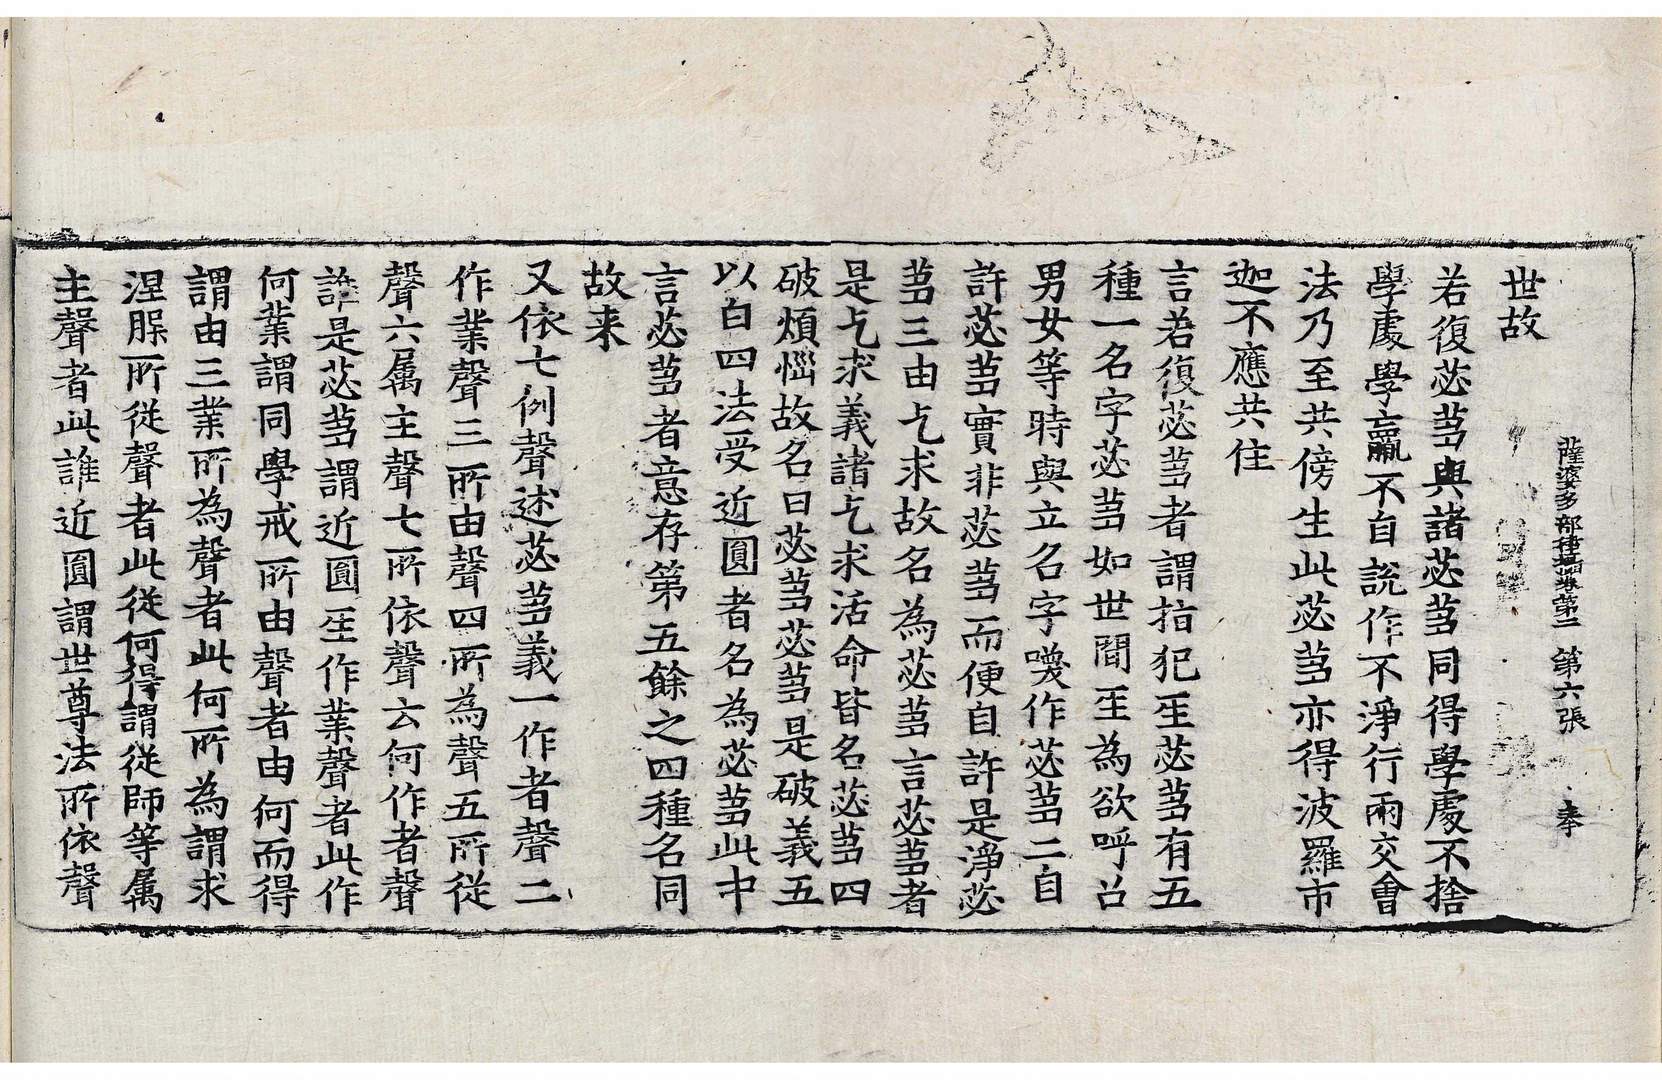 薩婆多部律攝卷第二　第六張　奉
世故
若復苾芻與諸苾芻同得學處不捨
學處學羸不自說作不淨行兩交會
法乃至共傍生此苾芻亦得波羅市
迦不應共住
言若復苾芻者謂指犯𤯔苾芻有五
種一名字苾芻如世間𤯔為欲呼召
男女等時與立名字喚作苾芻二自
許苾芻實非苾芻而便自許是淨苾
芻三由乞求故名為苾芻言苾芻者
是乞求義諸乞求活命皆名苾芻四
破煩惱故名曰苾芻苾芻是破義五
以白四法受近圓者名為苾芻此中
言苾芻者意存第五餘之四種名同
故来
又依七例聲述苾芻義一作者聲二
作業聲三所由聲四所為聲五所從
聲六属主聲七所依聲云何作者聲
誰是苾芻謂近圓𤯔作業聲者此作
何業謂同學戒所由聲者由何而得
謂由三業所為聲者此何所為謂求
涅槃所從聲者此從何得謂從師等属
主聲者此誰近圓謂世尊法所依聲